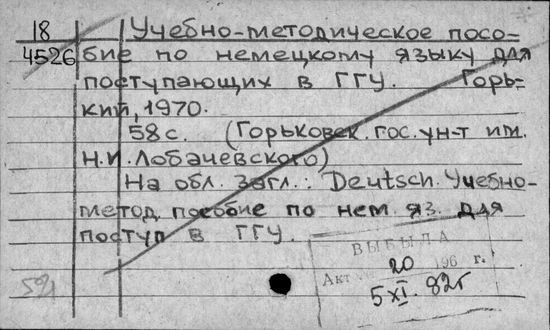 18
4526
Учебно-методическое посо-
бие по немецкому языку для
поступающих в ГГУ. Горь-
кий, 1970.
58 с. (Горьковск. гос. ун-т им.
Н.И. Лобачевского)
На обл. загл.: Deutsch. Учебно-
метод. пособие по нем. яз. для
поступ в ГГУ.
ВЫБЫЛА
Акт 20 196 г.
5 XI. 82г